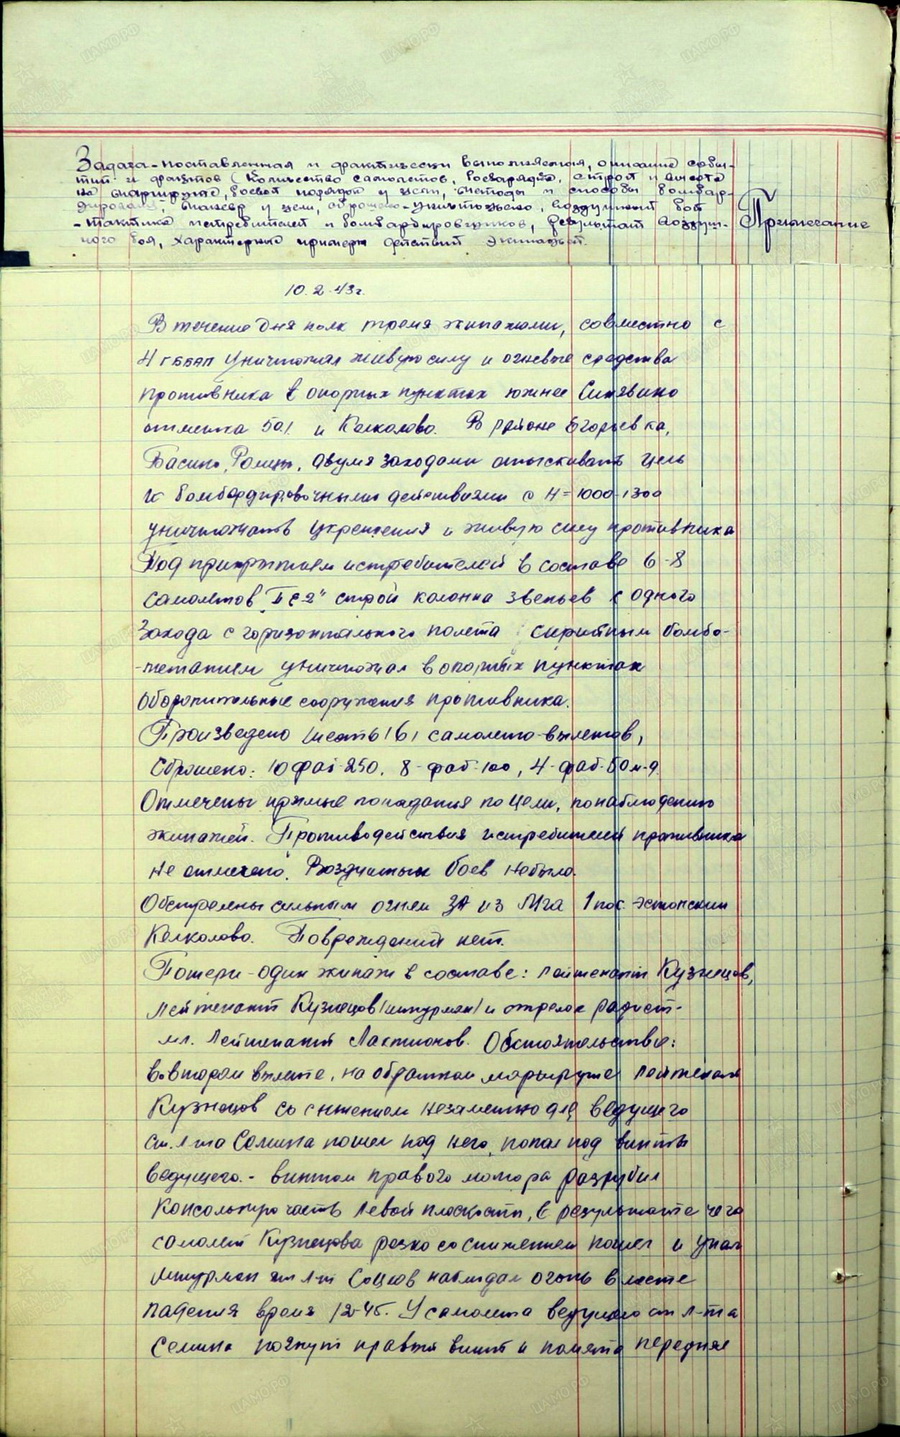 Задача-поставленная и фактически выполняемая, описание собы-
тий и фактов (Количество самолетов, боезарядка, строй и высота
на маршруте, боевой порядок у цели, методы и способы бомбар-
дировки, маневр у цели, сброшено-уничтожено, воздушный бой
- тактика истребителей и бомбардировщиков, результат воздуш-
ного боя, характерные примеры действий экипажей.
Примечание
10.2.43г.
В течение дня полк тремя экипажами, совместно с
4 ГББАП уничтожал живую силу и огневые средства
противника в опорных пунктах южнее Синявино
отметка 50.1 и Келколово. В районе Егоровка,
двумя заходами отыскивать цель
и бомбардировочными действиями с Н=1000-1300
уничтожать укрепления и живую силу противника
Под прикрытием истребителей в составе 6-8
самолетов строй колонна звеньев с одного
захода с горизонтального полета серийным бомбо-
-метанием уничтожал в опорных пунктах
оборонительные сооружения противника.
Произведено шесть (6) самолето-вылетов,
Сброшено: 10 фаб-250, 8-фаб-100, 4-фаб-50 м.9.
Отмечены прямые попадания по цели, по наблюдению
экипажей. Противодействия истребителей противника
не отмечено. Воздушных боев небыло.
Обстреляны сильным огнем ЗА из Мга 1 пос. эстонский
Келколово. Повреждений нет.
Потери-один экипаж в составе: лейтенант Кузнецов,
лейтенант Кузнецов/штурман/ и стрелок радист-
мл. лейтенант Лактионов. Обстоятельства:
во втором вылете, на обратном маршруте лейтенант
Кузнецов со снижением незаметно для ведущего
ст. л-та Семина пошел под него, попал под винты
ведущего.- винтом правого мотора разрубил
консольную часть левой плоскости, в результате чего
самолет Кузнецова резко со снижением пошел и упал
штурман ст л-т наблюдал огонь в месте
падения время 12-45. У самолета ведущего ст л-та
Семина погнут правый винт и помята передняя